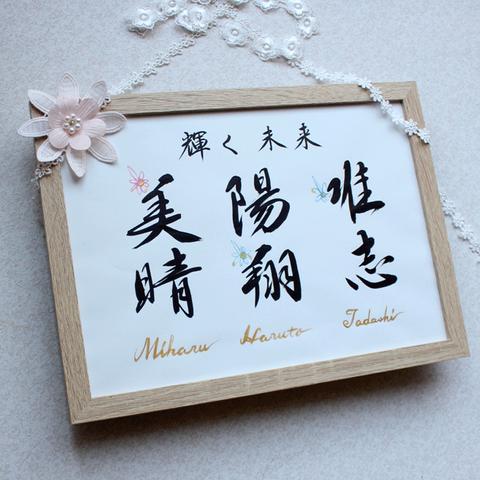 輝く未来
唯志
陽翔
美晴
Tadashi
Haruto
Miharu